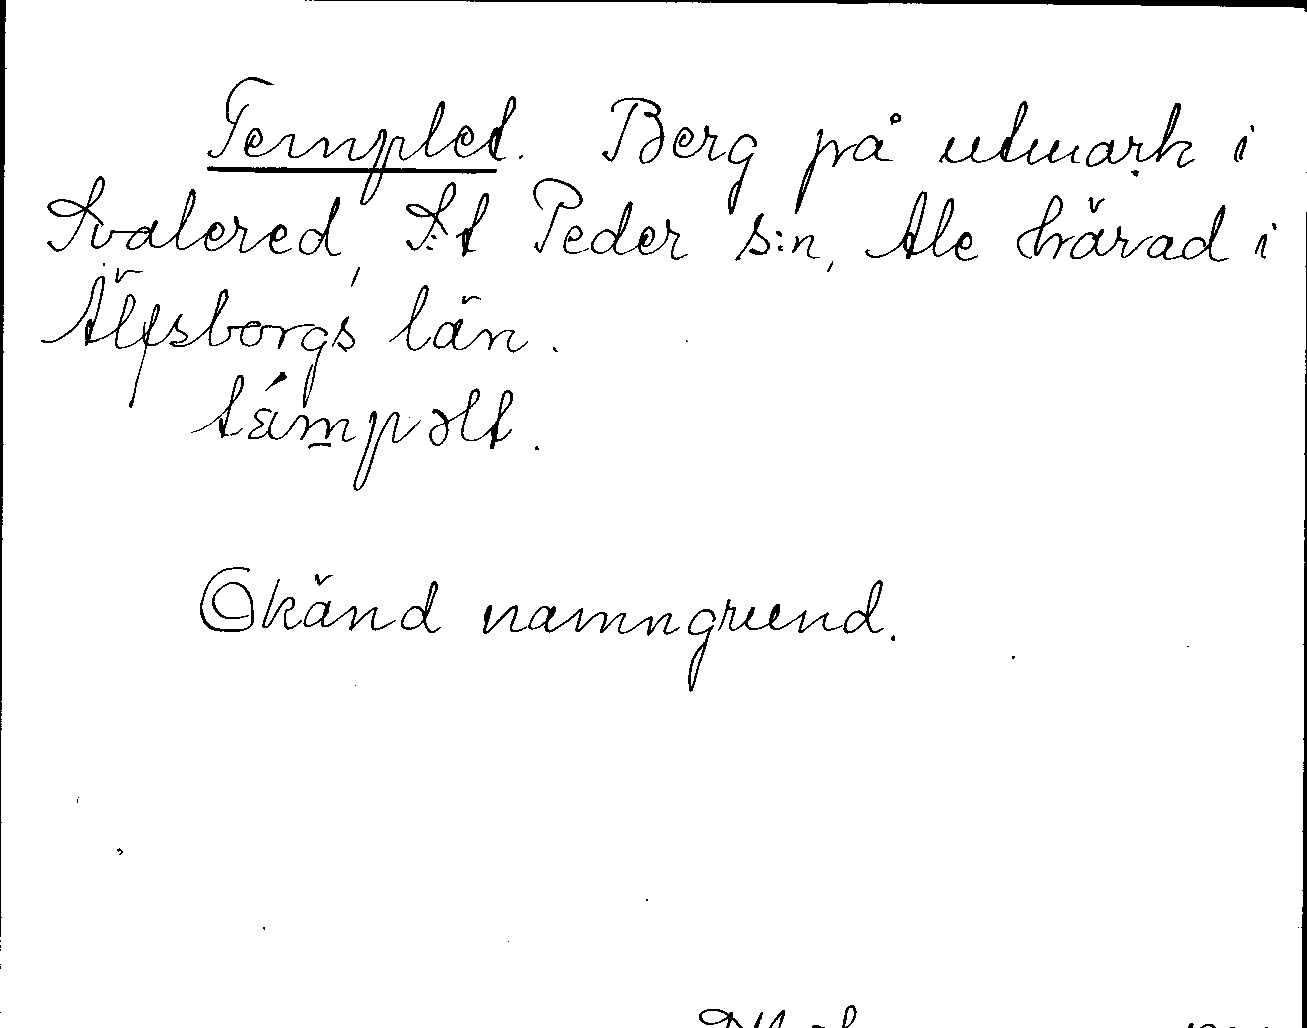 Templet. Berg på utmark i
Svalered, S:t Peder s:n, Ale härad i
Älfsborgs län.
tɛ́mpəlt.
Okänd namngrund.